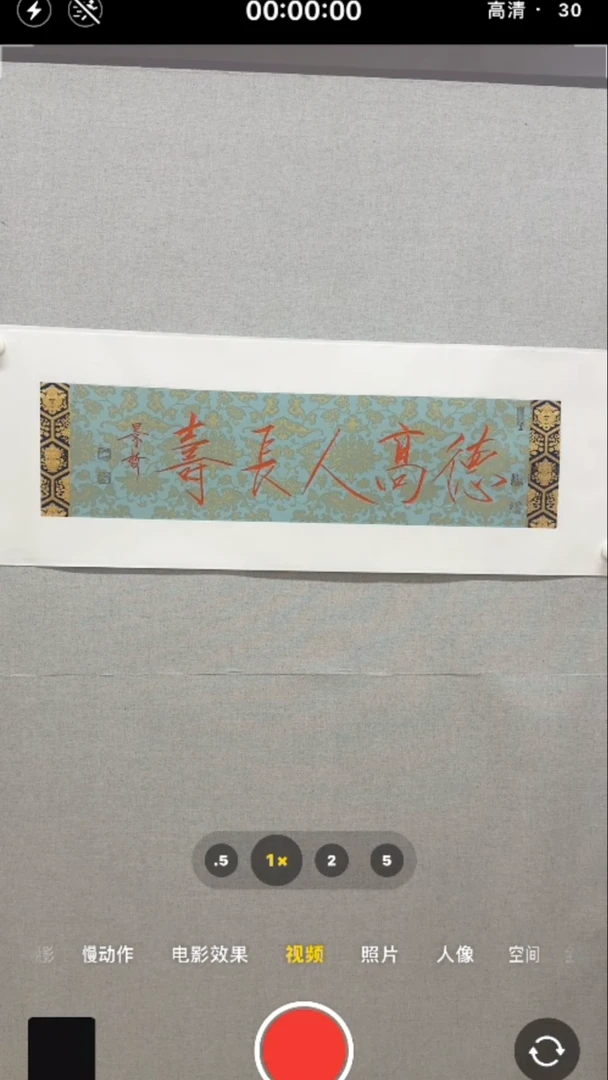 00:00:00
高清 · 30
德高人長壽
.5 1× 2 5
慢动作 电影效果 视频 照片 人像 空间